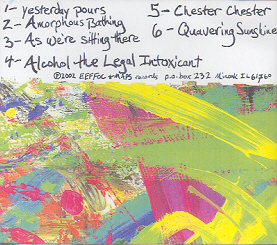 1- yesterday pours
2- Amorphous Bathing
3- As we're sitting there
4- Alcohol the Legal Intoxicant
5- Chester Chester
6- Quavering Sunshine
©2002 EEFFOC + records p.o. box 232 Minonk IL 61760